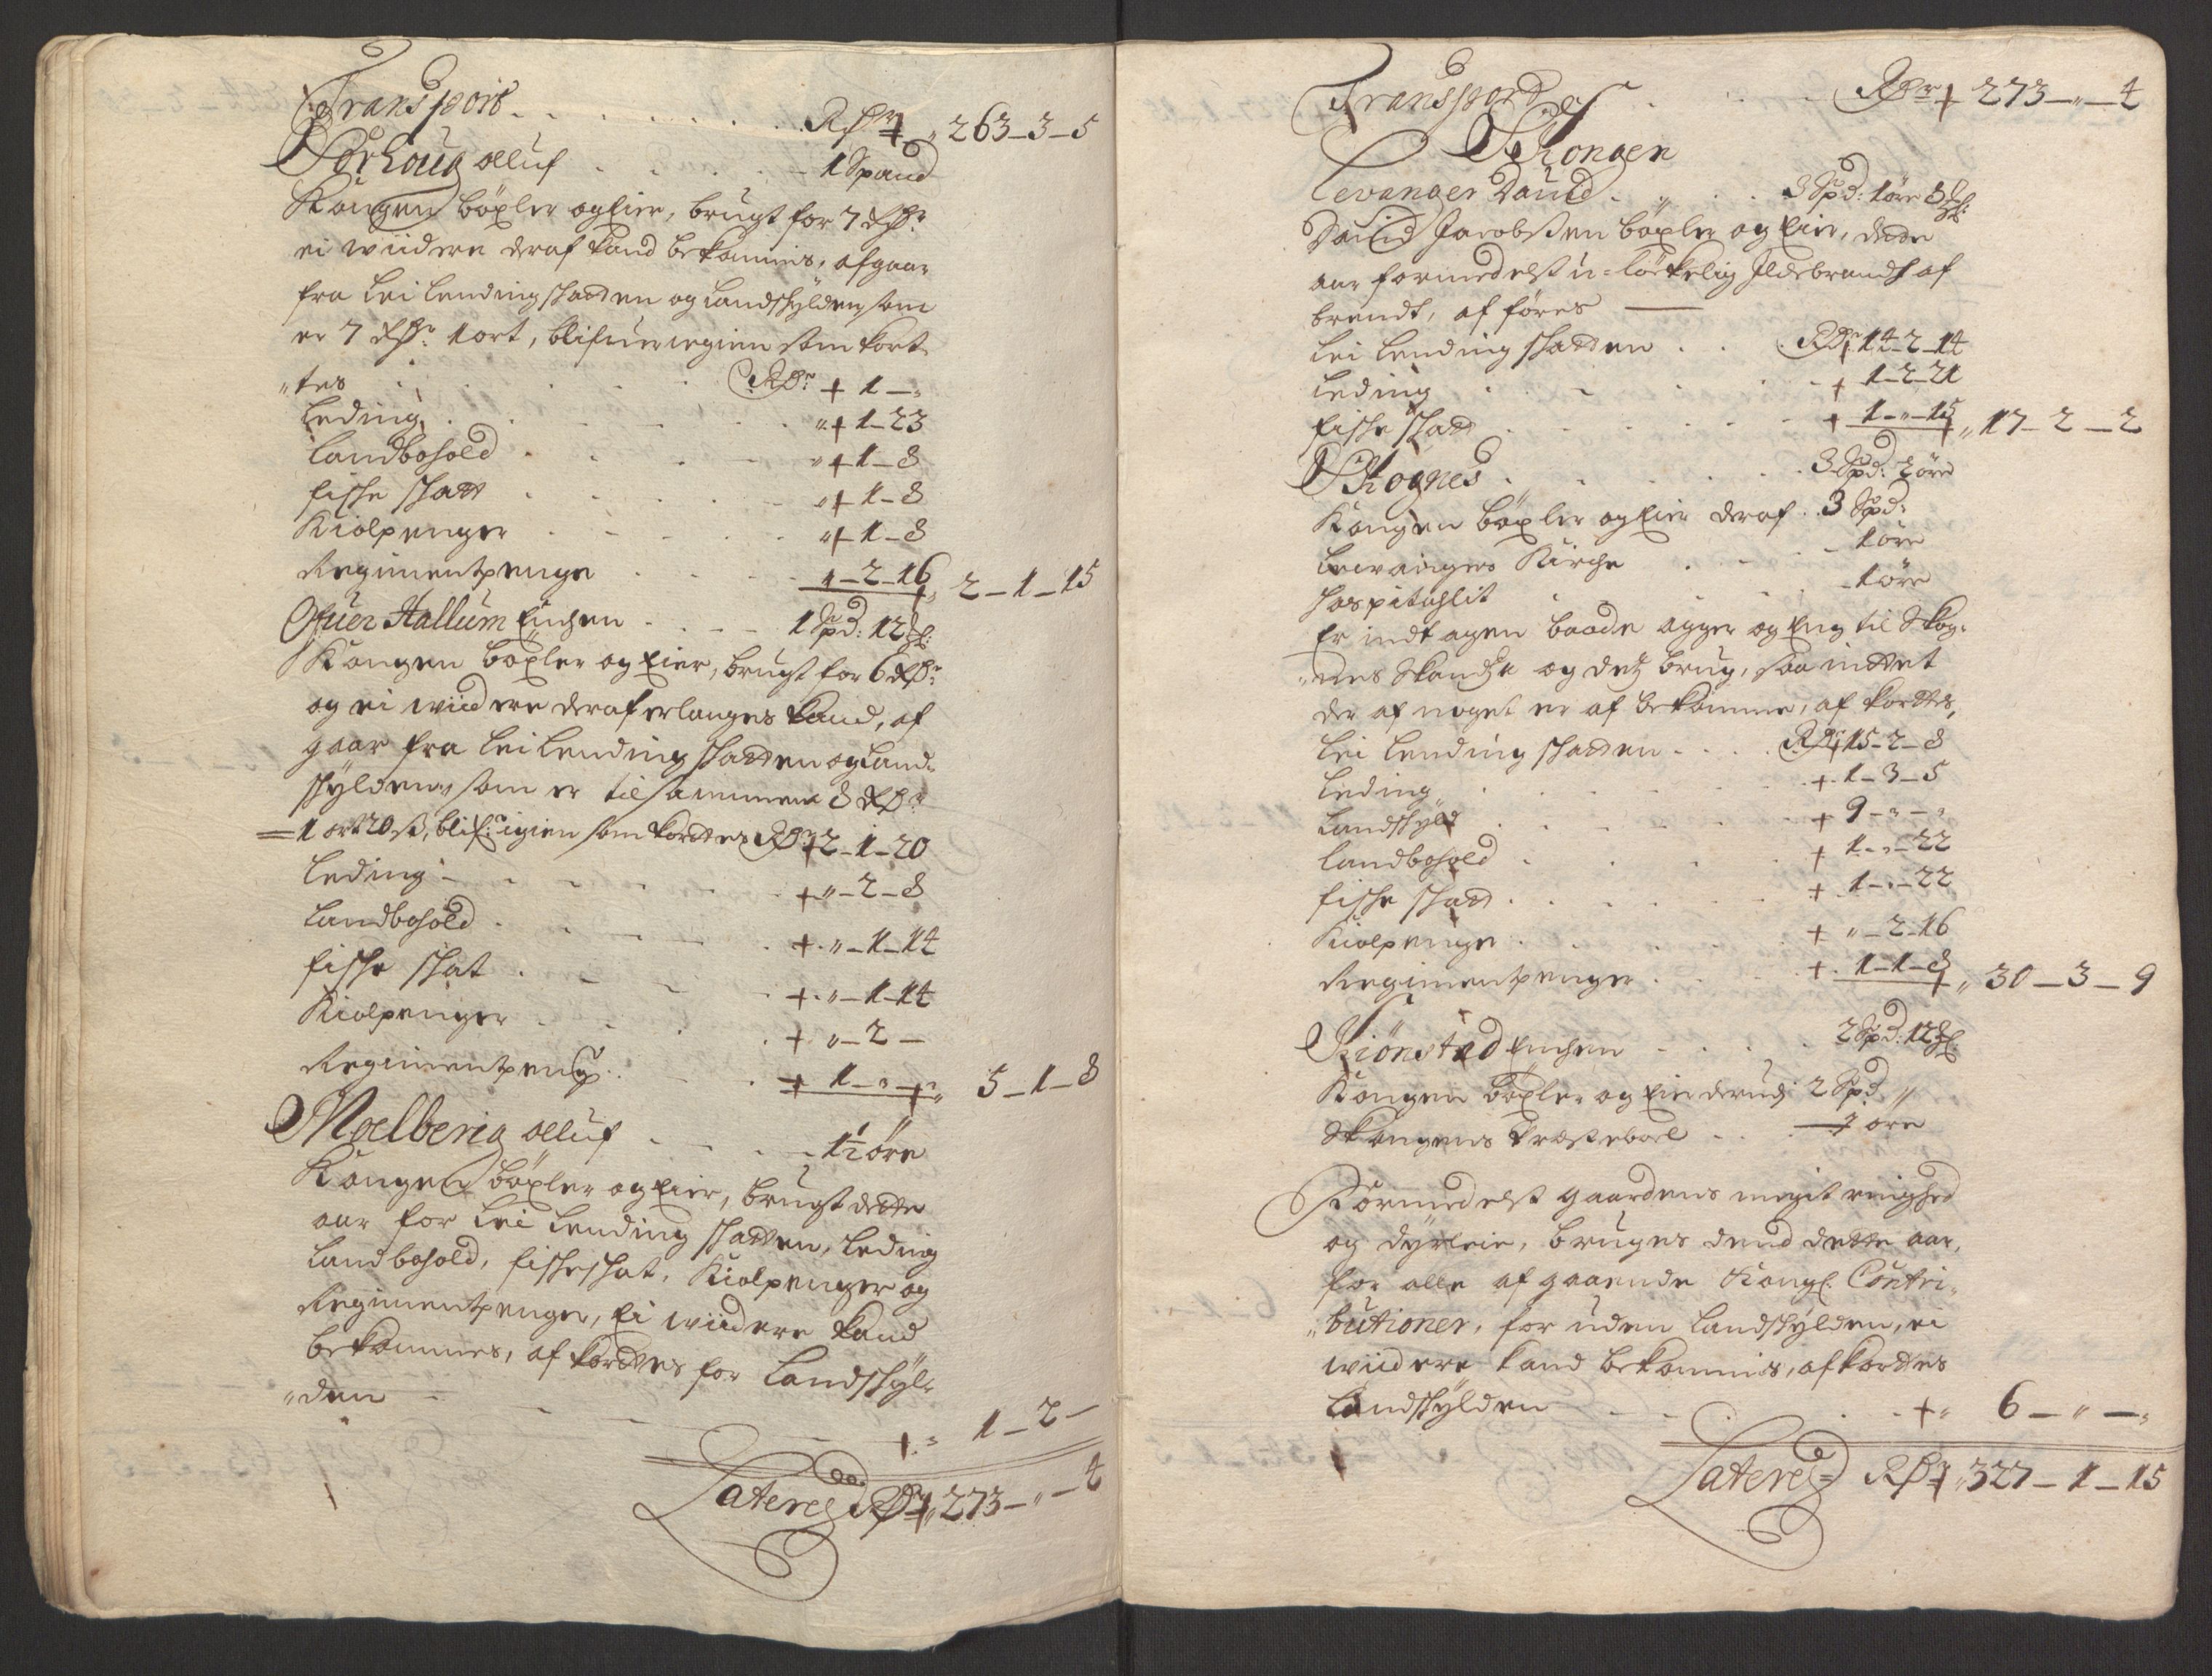 Transport . . . . . . . . Rdr 263–3–5
Norhoug Olluf . . . . 1 Spand
Kongen böxler og Eier, brugt for 7 Rdr
ei wiidere deraf kand bekommis, afgaar
fra Leilending skatten og Landskylden som
er 7 Rdr 1 ort, blifuer igien som kort
"tes . . . . Rdr 1 – "
Leding . . . . " 1–23
Landbohold . . . " 1–8
fische skatt . . . " 1–8
Kiolpenger . . . " 1–8
Regimentpenge . . . 1–2–16 " 2–1–15
Ofuer Hallum Einchen . . . 1 Spd: 12 ℳl:
Kongen böxler og Eier, brugt for 6 Rdr
og ei wiidere deraf erlanges kand, af
gaar fra Leilending skatten og Land-
skylden, som er tilsammen 8 Rdr
1 ort 20 ß, blif: igien som kortes Rdr 2–1–20
Leding . . . " –2–8
Landbohold . . . " –1–14
fische skat . . . " –1–14
Kiolpenger . . . " –2 –
Regimentpeng: . . 1 – " – " 5–1–8
Moelberig Olluf . . . 1½ öre
Kongen böxler og Eier, brugt dette
aar for Leilending skatten, Leding
Landbohold, fischeskat, Kiolpenger og
Regimentpenger, Ei wiidere kand
bekommes, af kortes for Landskyl-
"den . . . . " 1–2–
Lateres Rdr " 273– " –4
Transport . . . Rdr 273– " –4
Skongen
Levanger Dauid . " . . 3 Spd: 1 öre 8 ℳl:
Dauid Jacobsen böxler og Eier, dette
aar formedelst u=löckelig Ildebrandt af
brendt, af föres —
Leilending skatten . . Rdr 14–2–14
Leding . . . 1–2–21
fische skatt . . . 1– " –15 " 17–2–2
Skognes . . . 3 Spd: 2 öre
Kongen böxler og Eier deraf . 3 Spd:
Lewanger Kirche . . – 1 öre
Hospitahlit . . . 1 öre
Er indtagen baade agger og Eng til Skog-
"nes Skandtze og detz brug, saa inttet
der af noget er af bekomme, af kortes,
Leilending skatten . . . Rdr 15–2–8
Leding . . . 1–3–5
Landskyld . . . 9– " – "
Landbohold . . . 1– " –22
fische skatt . . . 1– " –22
Kiolpenge . . . " –2–16
Regimentpenger . . . 1–1–8 " 30–3–9
Giönstad Einchen . . . 2 Spd: 12 ℳl:
Kongen böxler og Eier derudj 2 Spd "
Skongens Præsteboel . . – 1 öre
Formedelst gaardens megit ringhed
og dyrleie, bruges dend dette aar,
for alle afgaaende Kongl: Contri-
"butioner, foruden Landskylden, ei
wiidere kand bekommis, afkortes
Landskylden . . . " 6– " – "
Lateres Rdr " 327–1–15